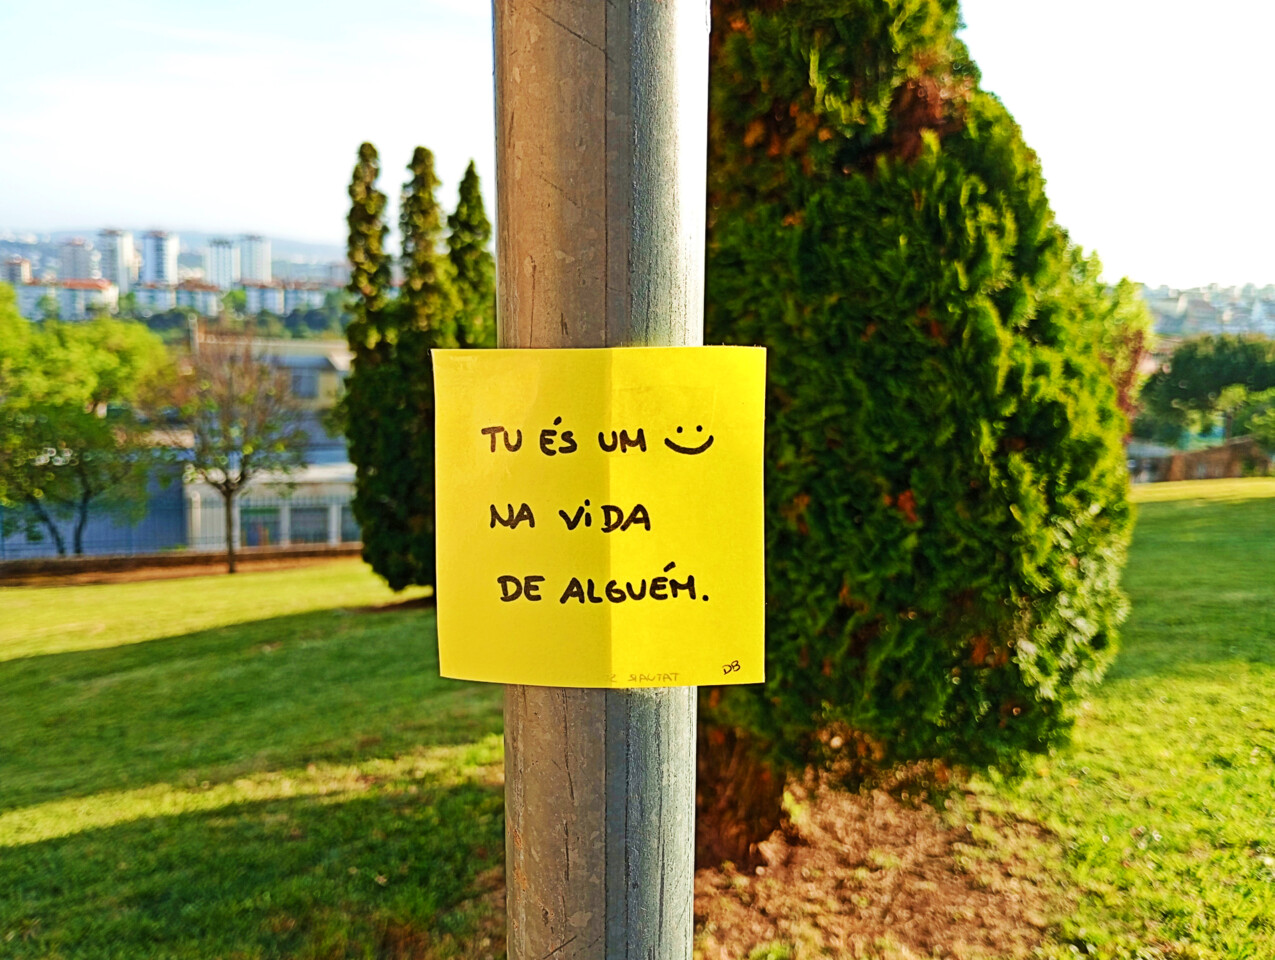 TU ÉS UM
NA ViDA
DE ALGUÉM.
DB